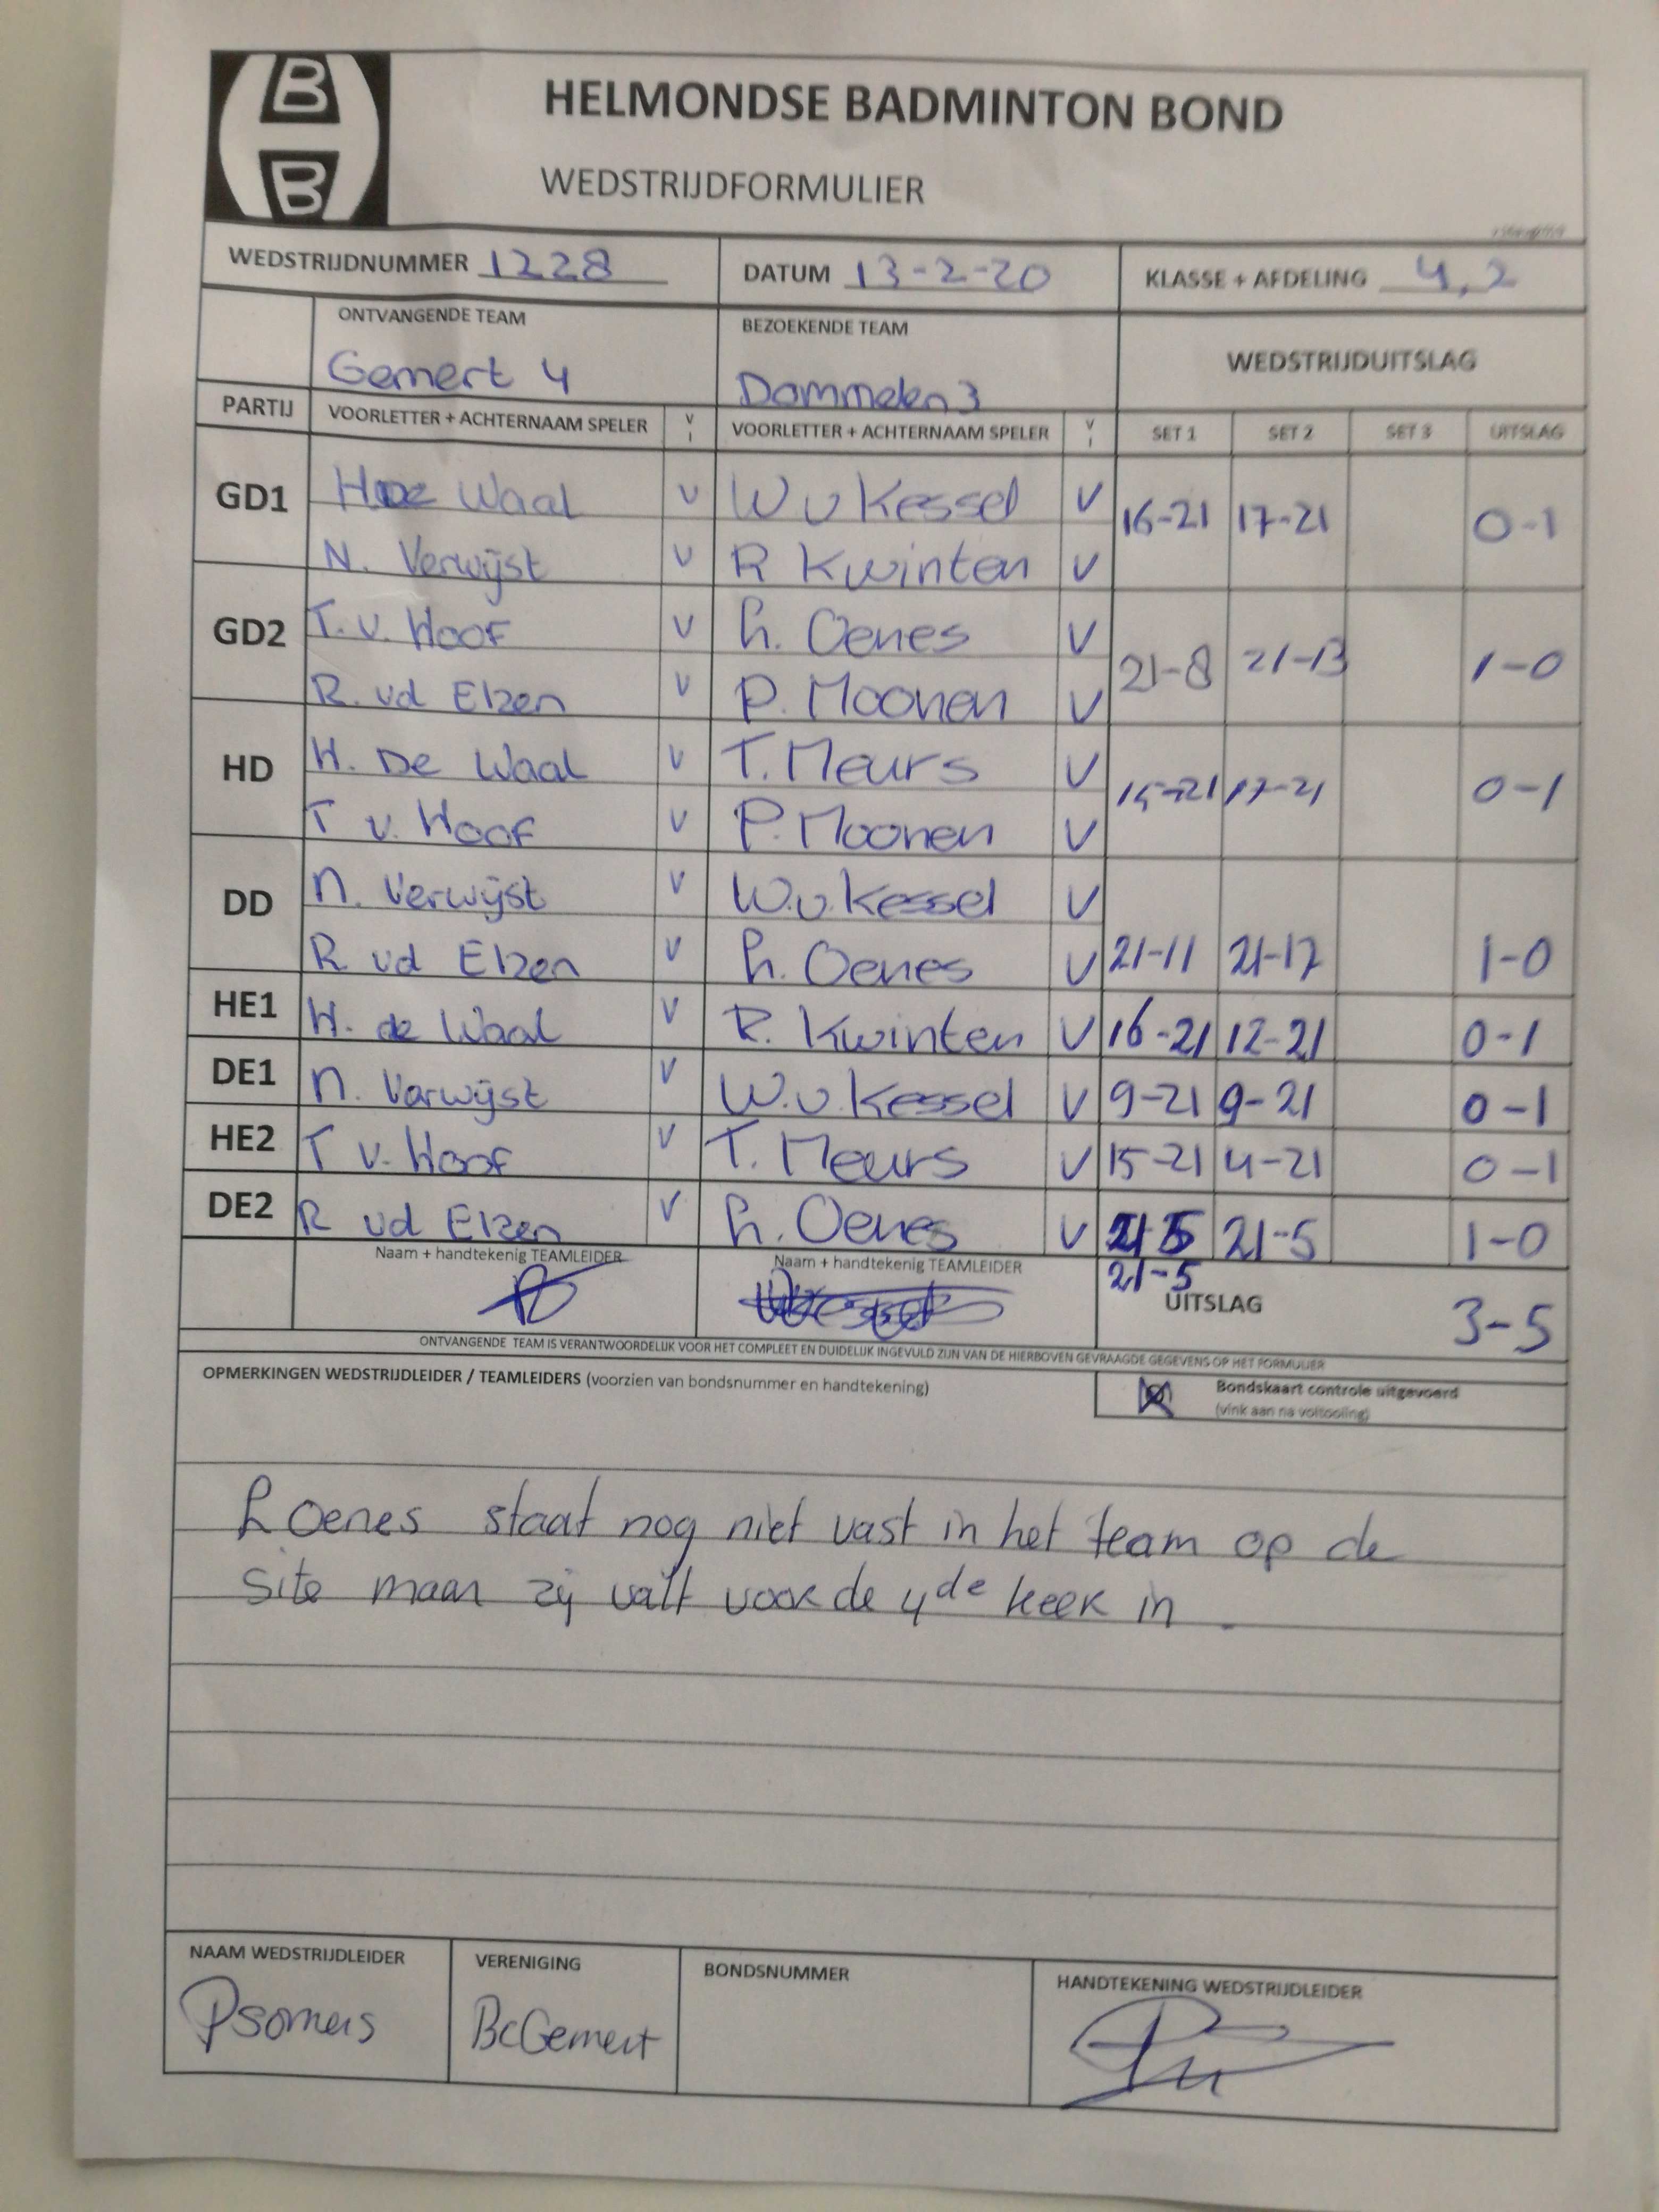 B
B
HELMONDSE BADMINTON BOND
WEDSTRIJDFORMULIER
WEDSTRIJDNUMMER 1228 DATUM 13-2-20 KLASSE + AFDELING 4,2
ONTVANGENDE TEAM BEZOEKENDE TEAM WEDSTRIJDUITSLAG
Gemert 4 Dommelen 3
PARTIJ VOORLETTER + ACHTERNAAM SPELER V VOORLETTER + ACHTERNAAM SPELER V SET 1 SET 2 SET 3 UITSLAG
GD1 H De Waal V W v Kessel V 16-21 17-21 0-1
N. Verwijst V R Kwinten V
GD2 T. v. Hoof V L. Oenes V 21-8 21-13 1-0
R. vd Elzen V P. Moonen V
HD H. De Waal V T. Meurs V 15-21 17-21 0-1
T v. Hoof V P. Moonen V
DD N. Verwijst V W.v. Kessel V
R vd Elzen V L. Oenes V 21-11 21-17 1-0
HE1 H. de Waal V R. Kwinten V 16-21 12-21 0-1
DE1 N. Verwijst V W.v. Kessel V 9-21 9-21 0-1
HE2 T v. Hoof V T. Meurs V 15-21 4-21 0-1
DE2 R vd Elzen V L. Oenes V 21-5 1-0
Naam + handtekenig TEAMLEIDER Naam + handtekenig TEAMLEIDER 21-5
UITSLAG 3-5
ONTVANGENDE TEAM IS VERANTWOORDELIJK VOOR HET COMPLEET EN DUIDELIJK INGEVULD ZIJN VAN DE HIERBOVEN GEVRAAGDE GEGEVENS OP HET FORMULIER
OPMERKINGEN WEDSTRIJDLEIDER / TEAMLEIDERS (voorzien van bondsnummer en handtekening) Bondskaart controle uitgevoerd
(vink aan na voltooiing)
L Oenes staat nog niet vast in het team op de
site maar zij valt voor de 4de keer in
NAAM WEDSTRIJDLEIDER VERENIGING BONDSNUMMER HANDTEKENING WEDSTRIJDLEIDER
P Somers BC Gemert